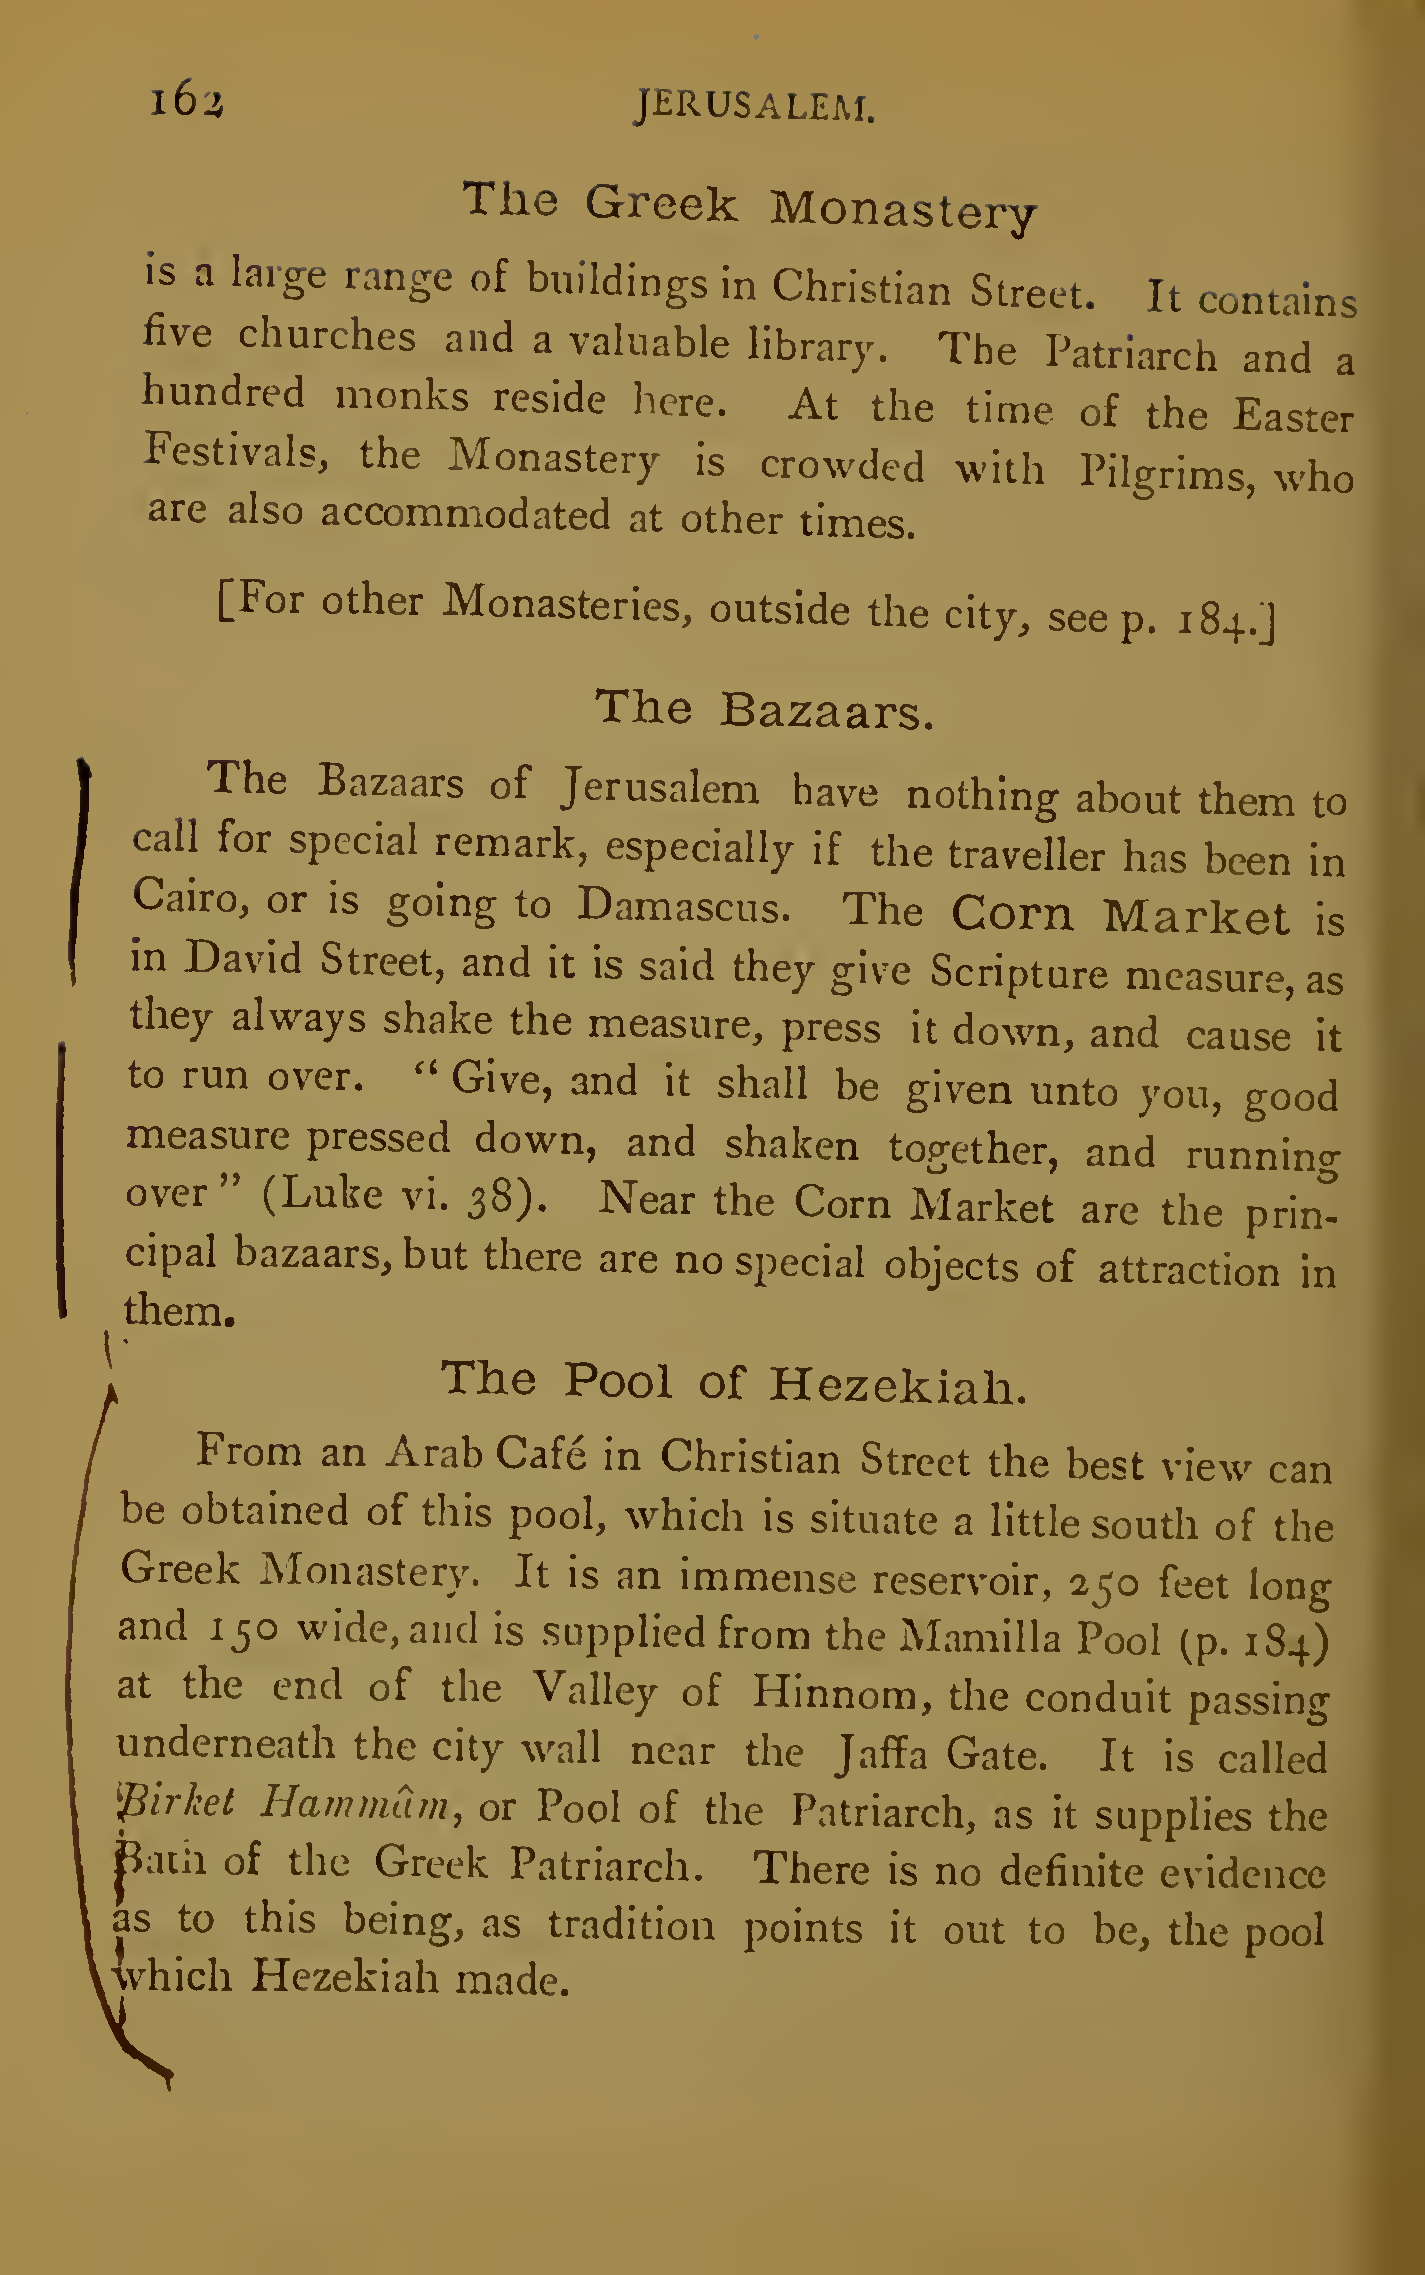 162 JERUSALEM.
The Greek Monastery
is a large range of buildings in Christian Street. It contains
five churches and a valuable library. The Patriarch and a
hundred monks reside here. At the time of the Easter
Festivals, the Monastery is crowded with Pilgrims, who
are also accommodated at other times.
[For other Monasteries, outside the city, see p. 184.]
The Bazaars.
The Bazaars of Jerusalem have nothing about them to
call for special remark, especially if the traveller has been in
Cairo, or is going to Damascus. The Corn Market is
in David Street, and it is said they give Scripture measure, as
they always shake the measure, press it down, and cause it
to run over. “ Give, and it shall be given unto you, good
measure pressed down, and shaken together, and running
over ” (Luke vi. 38). Near the Corn Market are the prin-
cipal bazaars, but there are no special objects of attraction in
them.
The Pool of Hezekiah.
From an Arab Café in Christian Street the best view can
be obtained of this pool, which is situate a little south of the
Greek Monastery. It is an immense reservoir, 250 feet long
and 150 wide, and is supplied from the Mamilla Pool (p. 184)
at the end of the Valley of Hinnom, the conduit passing
underneath the city wall near the Jaffa Gate. It is called
Birket Hammâm, or Pool of the Patriarch, as it supplies the
Bath of the Greek Patriarch. There is no definite evidence
as to this being, as tradition points it out to be, the pool
which Hezekiah made.